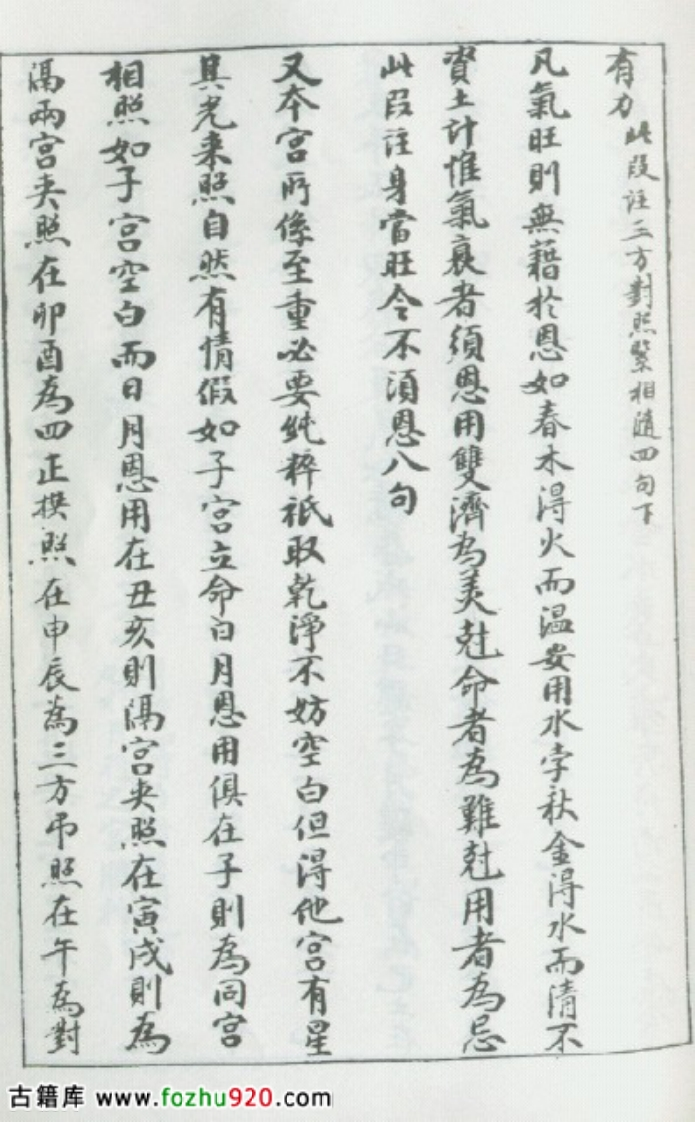 有力 此段註三方對照緊相隨四句下
凡氣旺則無藉於恩如春木得火而温安用水孛秋金得水而清不
資土計惟氣衰者須恩用雙濟為美尅命者為難尅用者為忌
此段註身當旺令不須恩八句
又本宫所係至重必要純粹祇取乾淨不妨空白但得他宫有星
其光来照自然有情假如子宫立命日月恩用俱在子則為同宫
相照如子宫空白而日月恩用在丑亥則隔宫夾照在寅戌則為
隔兩宫夾照在卯酉為四正拱照在申辰為三方吊照在午為對
古籍库 www.fozhu920.com